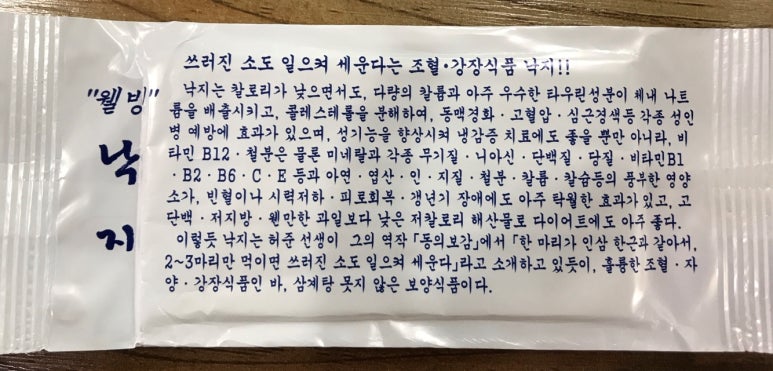 쓰러진 소도 일으켜 세운다는 조혈·강장식품 낙지!!
"웰빙"
낙
지
낙지는 칼로리가 낮으면서도, 다량의 칼륨과 아주 우수한 타우린성분이 체내 나트
륨을 배출시키고, 콜레스테롤을 분해하여, 동맥경화·고혈압·심근경색등 각종 성인
병 예방에 효과가 있으며, 성기능을 향상시켜 냉감증 치료에도 좋을 뿐만 아니라, 비
타민 B12·철분은 물론 미네랄과 각종 무기질·니아신·단백질·당질·비타민B1
·B2·B6·C·E 등과 아연·엽산·인·지질·철분·칼륨·칼슘등의 풍부한 영양
소가, 빈혈이나 시력저하·피로회복·갱년기 장애에도 아주 탁월한 효과가 있고, 고
단백·저지방·웬만한 과일보다 낮은 저칼로리 해산물로 다이어트에도 아주 좋다.
이렇듯 낙지는 허준 선생이 그의 역작 「동의보감」에서 「한 마리가 인삼 한근과 같아서,
2~3마리만 먹이면 쓰러진 소도 일으켜 세운다」라고 소개하고 있듯이, 훌륭한 조혈·자
양·강장식품인 바, 삼계탕 못지 않은 보양식품이다.